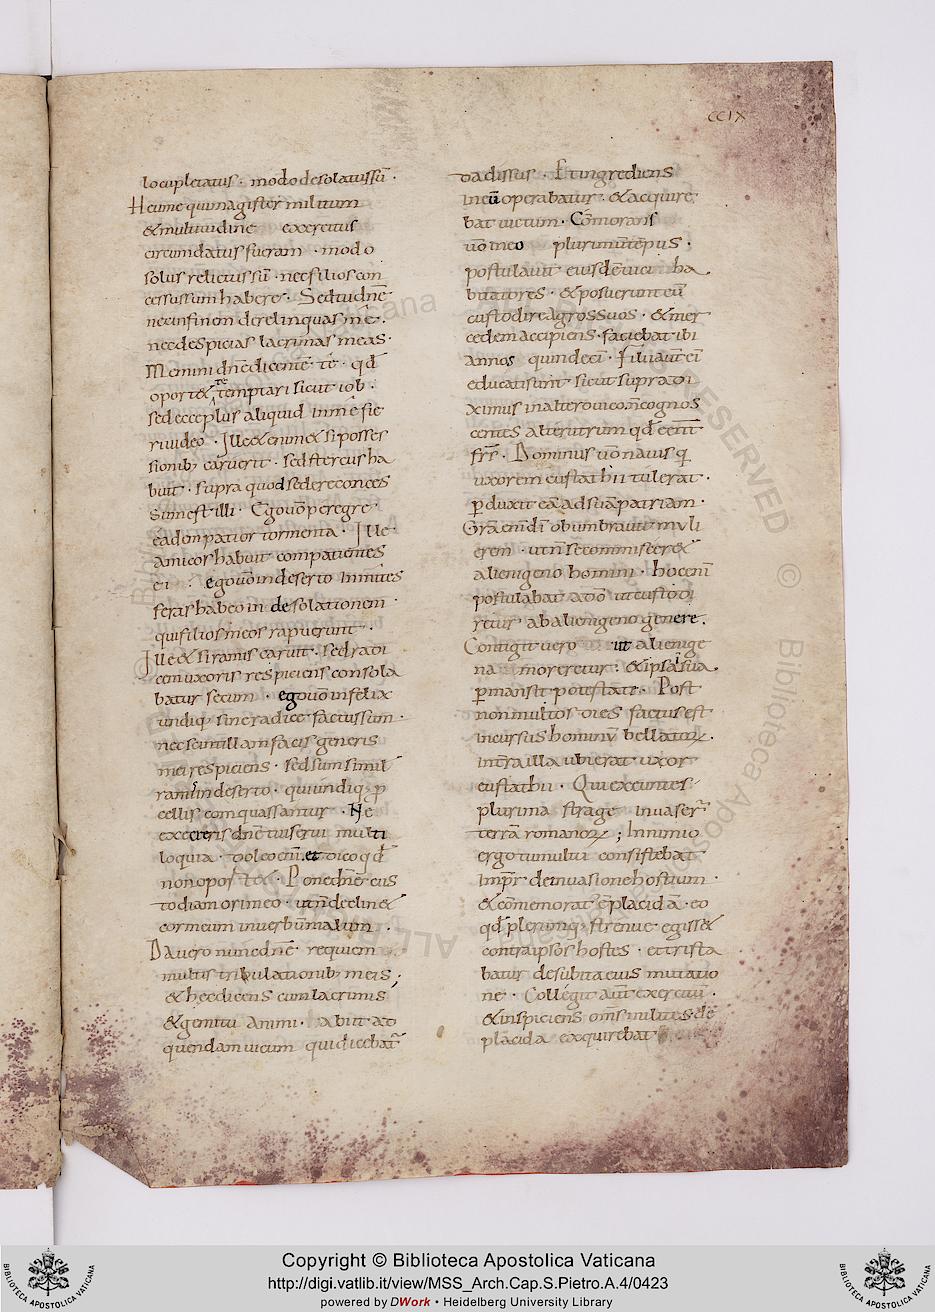 CCIX
locupletatus · modo desolatus sū ·
Heu me qui magister militum
& multitudine exercitus
circumdatus fueram · modo
solus relictus sū · nec filios con
cessus sum habere · Sed tu dn̄e
ne in finem derelinquas me ·
nec despicias lacrimas meas ·
Memini dn̄e dicente te · qd̄
oport& te temptari sicut iob ·
sed ecce plus aliquid in me fie
ri video · Ille & enim & si posses
sionib; caruerit · sed stercus ha
buit · supra quod sedere conces
sum est illi · Ego vō peregre
eadem patior tormenta · Ille
amicos habuit compatientes
ei · ego vō in deserto inmites
feras habeo in desolationem ·
qui filios meos rapuerunt ·
Ille & si ramis caruit · sed radi
cem uxoris respiciens consola
batur secum · ego vō infelix
undiq; sine radice factus sum ·
nec scintillam facis generis
mei respiciens · sed sum simil
ramis in deserto · qui undiq; p
cellis comquassantur · Ne
execreris dn̄e tui servi multi
loquia · doleo eni et dico qd̄
non oport& · Pone dn̄e cus
todiam ori meo · ut n̄ declin&
cor meum in verbum malum ·
Da vero nunc dn̄e requiem
multis tribulationib; meis ;
& hec dicens cum lacrimis
& gemitu animi · abiit ad
quendam vicum qui dicebat̄
dadissus · Et ingrediens
in eū operabatur · & acquire
bat victum · Cōmorans
vō in eo plurimū tēpus ·
postulavit eiusdē vici ha
bitatores · & posuerunt eū
custodire agros suos · & mer
cedem accipiens · faciebat ibi
annos quindeci · Filii aut̄ ei
educati sunt sicut supra di
ximus in altero vico · n̄ cognos
centes alterutrum qd̄ eent̄
frs̄ · Dominus vō navis q̄
uxorem eustathii tulerat ·
pduxit eā ad suā patriam ·
Grā eni dī obumbravit muli
erem · ut n̄ se commiscer&
alienigeno homini · hoc eni
postulabat a dō ut custodi
retur ab alienigeno genere ·
Contigit vero ut alienige
na moreretur · & ipsa sua
pmansit potestate · Post
non multos dies factus est
incursus hominū bellatorꝝ ·
in terra illa ubi erat uxor
eustathii · Qui exeuntes
plurima strage invaser̄
terrā romanorꝝ ; In nimio
ergo tumultu consistebat
impr̄ de invasione hostium ·
& cōmemorat̄ ē placidā · eo
qd̄ plerumq; strenue egiss&
contra ipsos hostes · et trista
batur de subita eius mutatio
ne · Collegit aut̄ exercitū ·
& inspiciens oms̄ milites de
placida exquirebat
Copyright © Biblioteca Apostolica Vaticana
http://digi.vatlib.it/view/MSS_Arch.Cap.S.Pietro.A.4/0423
powered by DWork • Heidelberg University Library